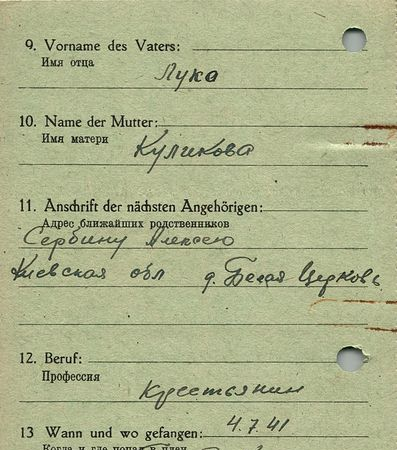 9. Vorname des Vaters:
Имя отца
Лука
10. Name der Mutter:
Имя матери
Куликова
11. Anschrift der nächsten Angehörigen:
Адрес ближайших родственников
Сербину Алексею
Киевская обл д. Белая Церковь
12. Beruf:
Профессия
Крестьянин
13 Wann und wo gefangen: 4.7.41
Когда и где попал в плен